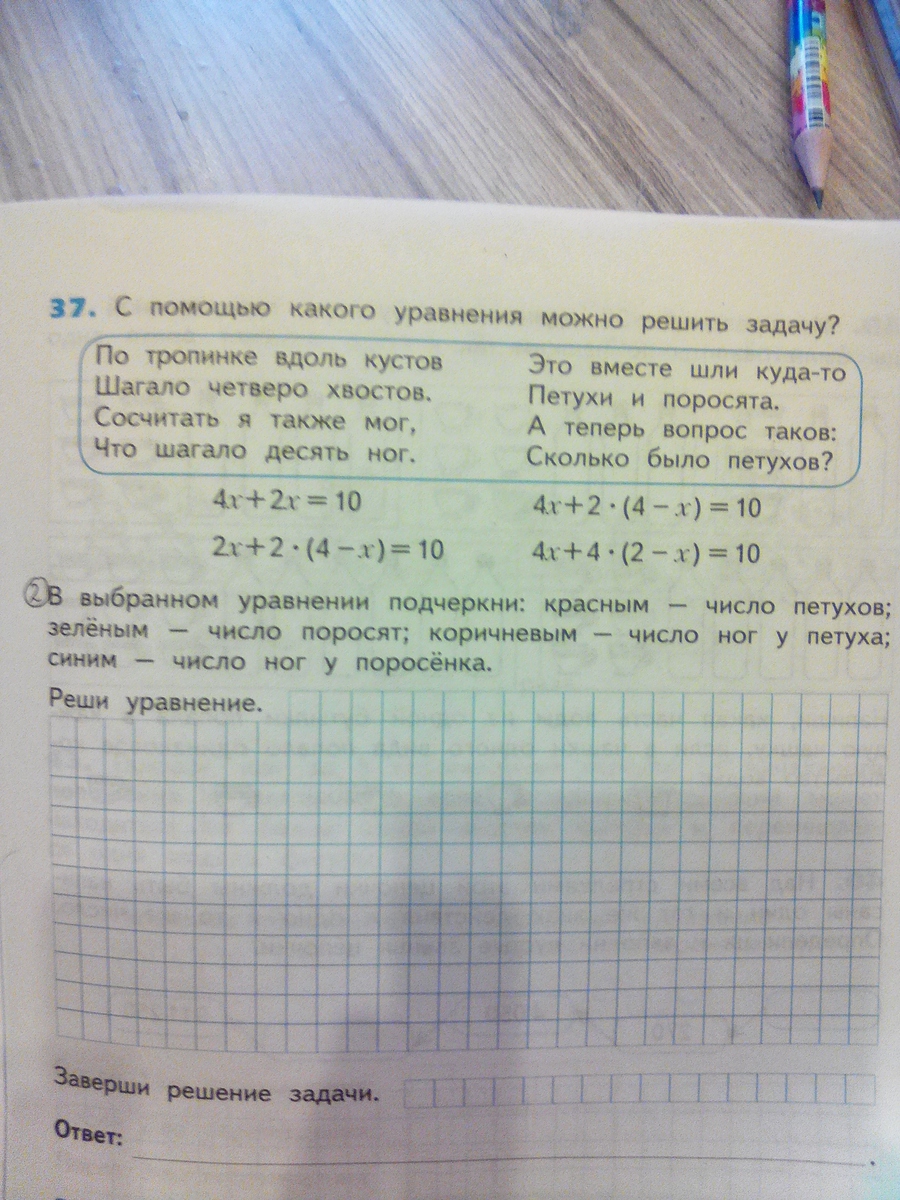 37. С помощью какого уравнения можно решить задачу?
По тропинке вдоль кустов
Шагало четверо хвостов.
Сосчитать я также мог,
Что шагало десять ног.
Это вместе шли куда-то
Петухи и поросята.
А теперь вопрос таков:
Сколько было петухов?
4x+2x=10
4x+2·(4−x)=10
2x+2·(4−x)=10
4x+4·(2−x)=10
2 В выбранном уравнении подчеркни: красным — число петухов;
зелёным — число поросят; коричневым — число ног у петуха;
синим — число ног у поросёнка.
Реши уравнение.
Заверши решение задачи.
Ответ: